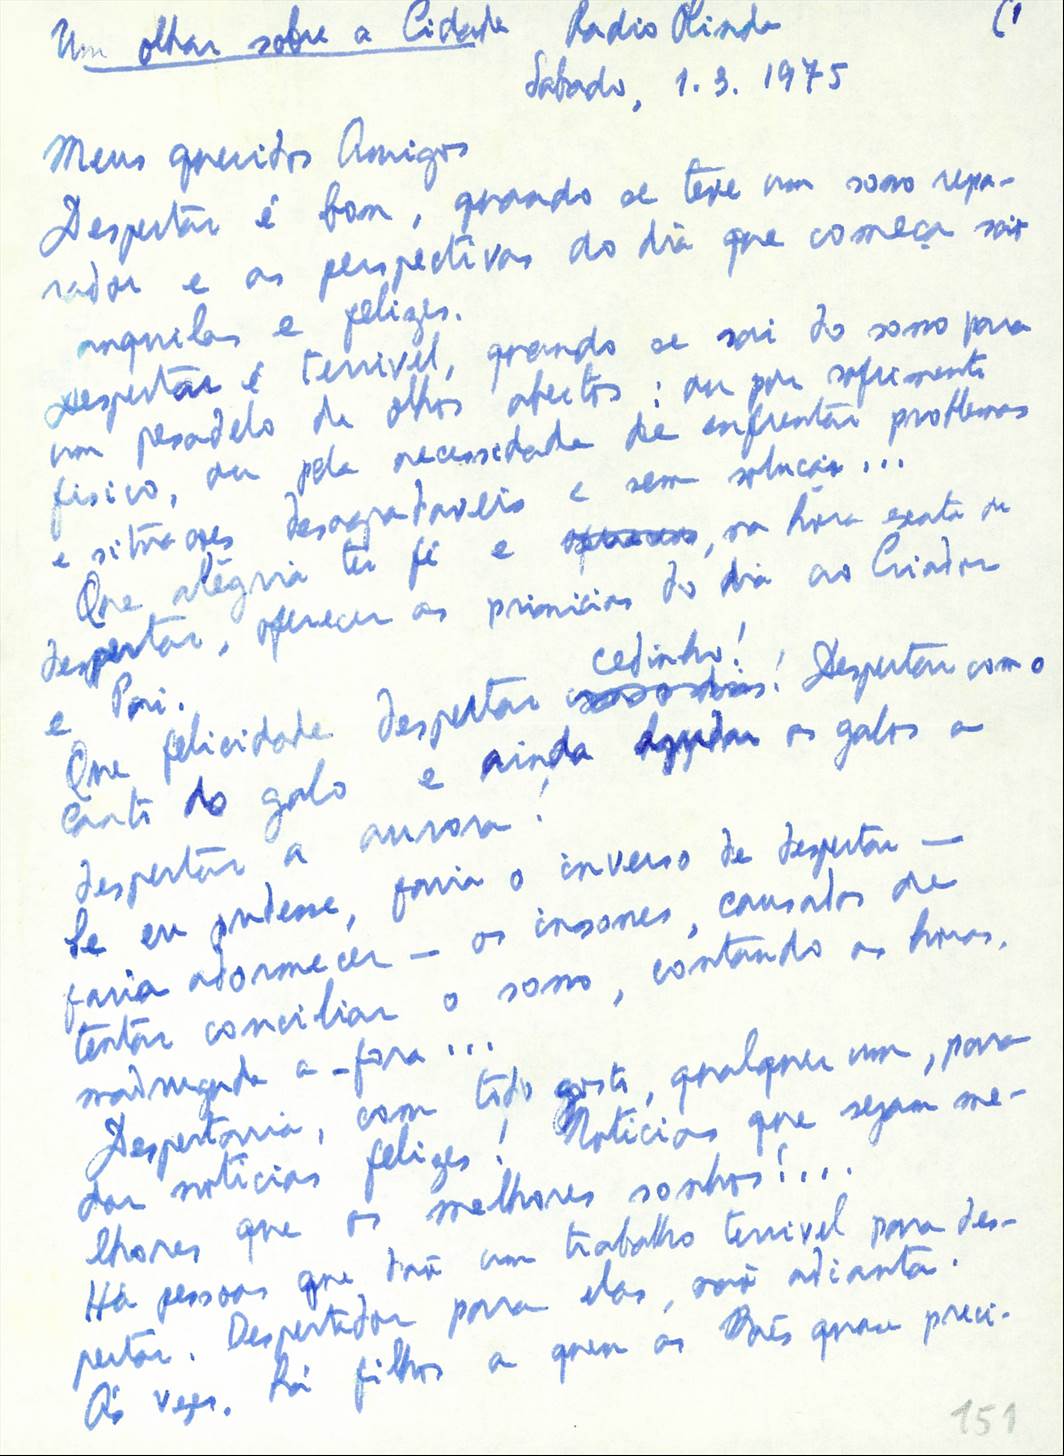 Um olhar sobre a Cidade Radio Olinda (1
Sabado, 1.3.1975
Meus queridos Amigos
Despertar é bom, quando se teve um sono repa-
rador e as perspectivas do dia que começa são
anquilas e felizes.
Despertar é terrivel, quando se sai do sono para
um pesadelo de olhos abertos: ou por sofrimento
fisico, ou pela necessidade de enfrentar problemas
e situações desagradaveis e sem solução...
Que alegria ter fé e, na hora exata de
despertar, oferecer as primicias do dia ao Criador
e Pai.
cedinho!
Que felicidade despertar ! Despertar com o
canto do galo e ainda ajudar os galos a
despertar a aurora!
Se eu pudesse, faria o inverso de despertar —
faria adormecer — os insones, cansados de
tentar conciliar o sono, contando as horas,
madrugada a-fora...
Despertaria, com todo gosto, qualquer um, para
dar noticias felizes! Noticias que sejam me-
lhores que os melhores sonhos!...
Há pessoas que dão um trabalho terrivel para des-
pertar. Despertador para elas, não adianta.
Às vezes, há filhos a quem as Mães quase preci-
151